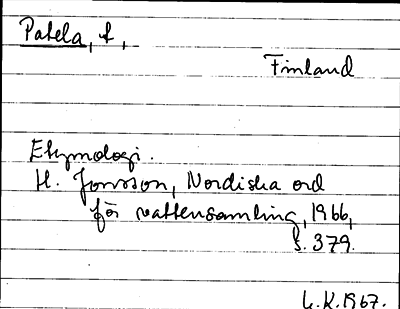 Patela, f,
Finland
Etymologi.
H. Jonsson, Nordiska ord
för vattensamling, 1966,
s. 379.
L.K. 1967.